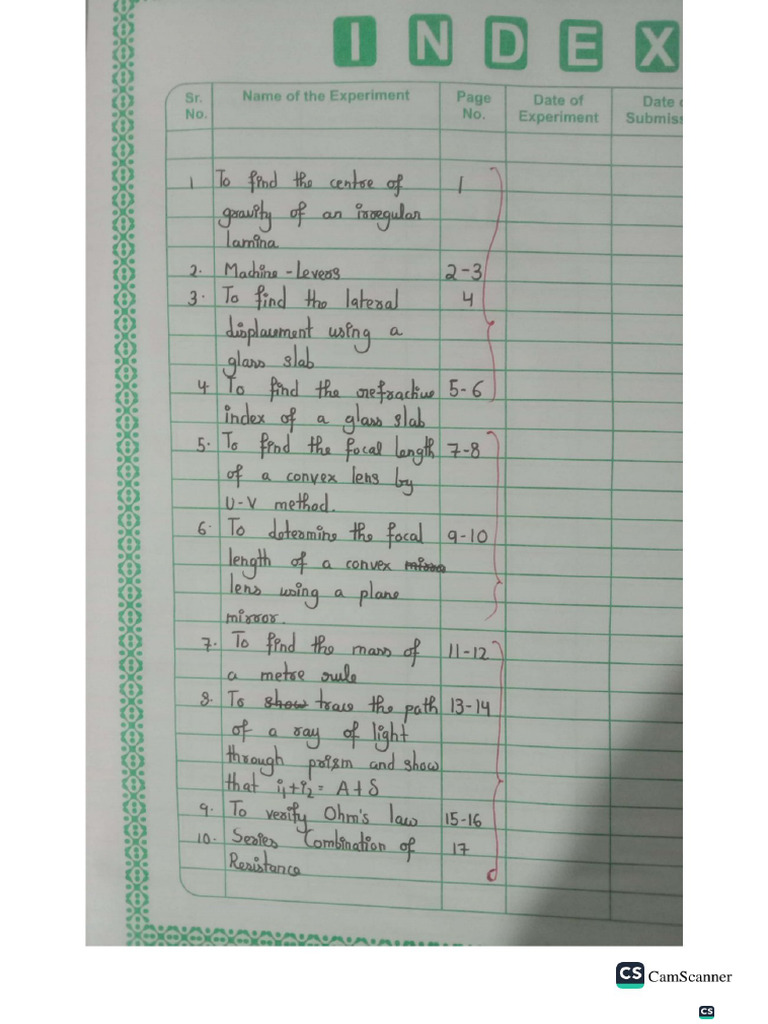 INDEX
Sr. No. Name of the Experiment Page No. Date of Experiment Date Submiss
1 To find the centre of 1
gravity of an irregular
lamina
2. Machine - Levers 2-3
3. To find the lateral 4
displacement using a
glass slab
4 To find the refractive 5-6
index of a glass slab
5. To find the focal length 7-8
of a convex lens by
U-V method.
6. To determine the focal 9-10
length of a convex mirro
lens using a plane
mirror.
7. To find the mass of 11-12
a metre rule
8. To show trace the path 13-14
of a ray of light
through prism and show
that i₁+i₂ = A+δ
9. To verify Ohm's law 15-16
10. Series Combination of 17
Resistance
CS CamScanner
CS